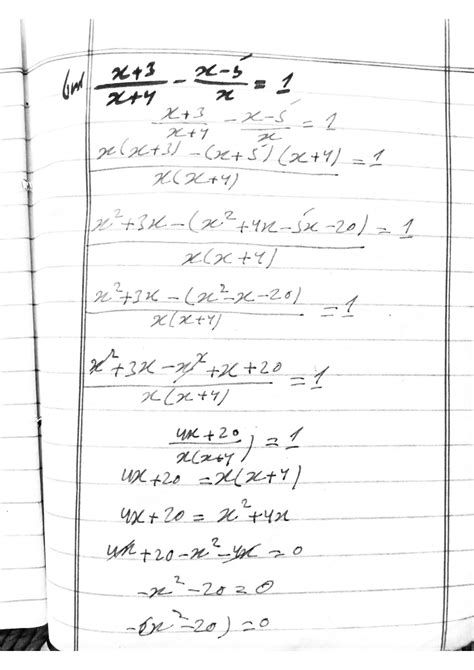 (xiii) x+3/x+4 - x-5/x = 1
x+3/x+4 - x-5/x = 1
x(x+3) - (x+5)(x+4)/x(x+4) = 1
x²+3x-(x²+4x-5x-20)/x(x+4) = 1
x²+3x-(x²-x-20)/x(x+4) = 1
x²+3x-x²+x+20/x(x+4) = 1
4x+20/x(x+4) = 1
4x+20 = x(x+4)
4x+20 = x²+4x
4x+20-x²-4x = 0
-x²-20 = 0
-(x²-20) = 0